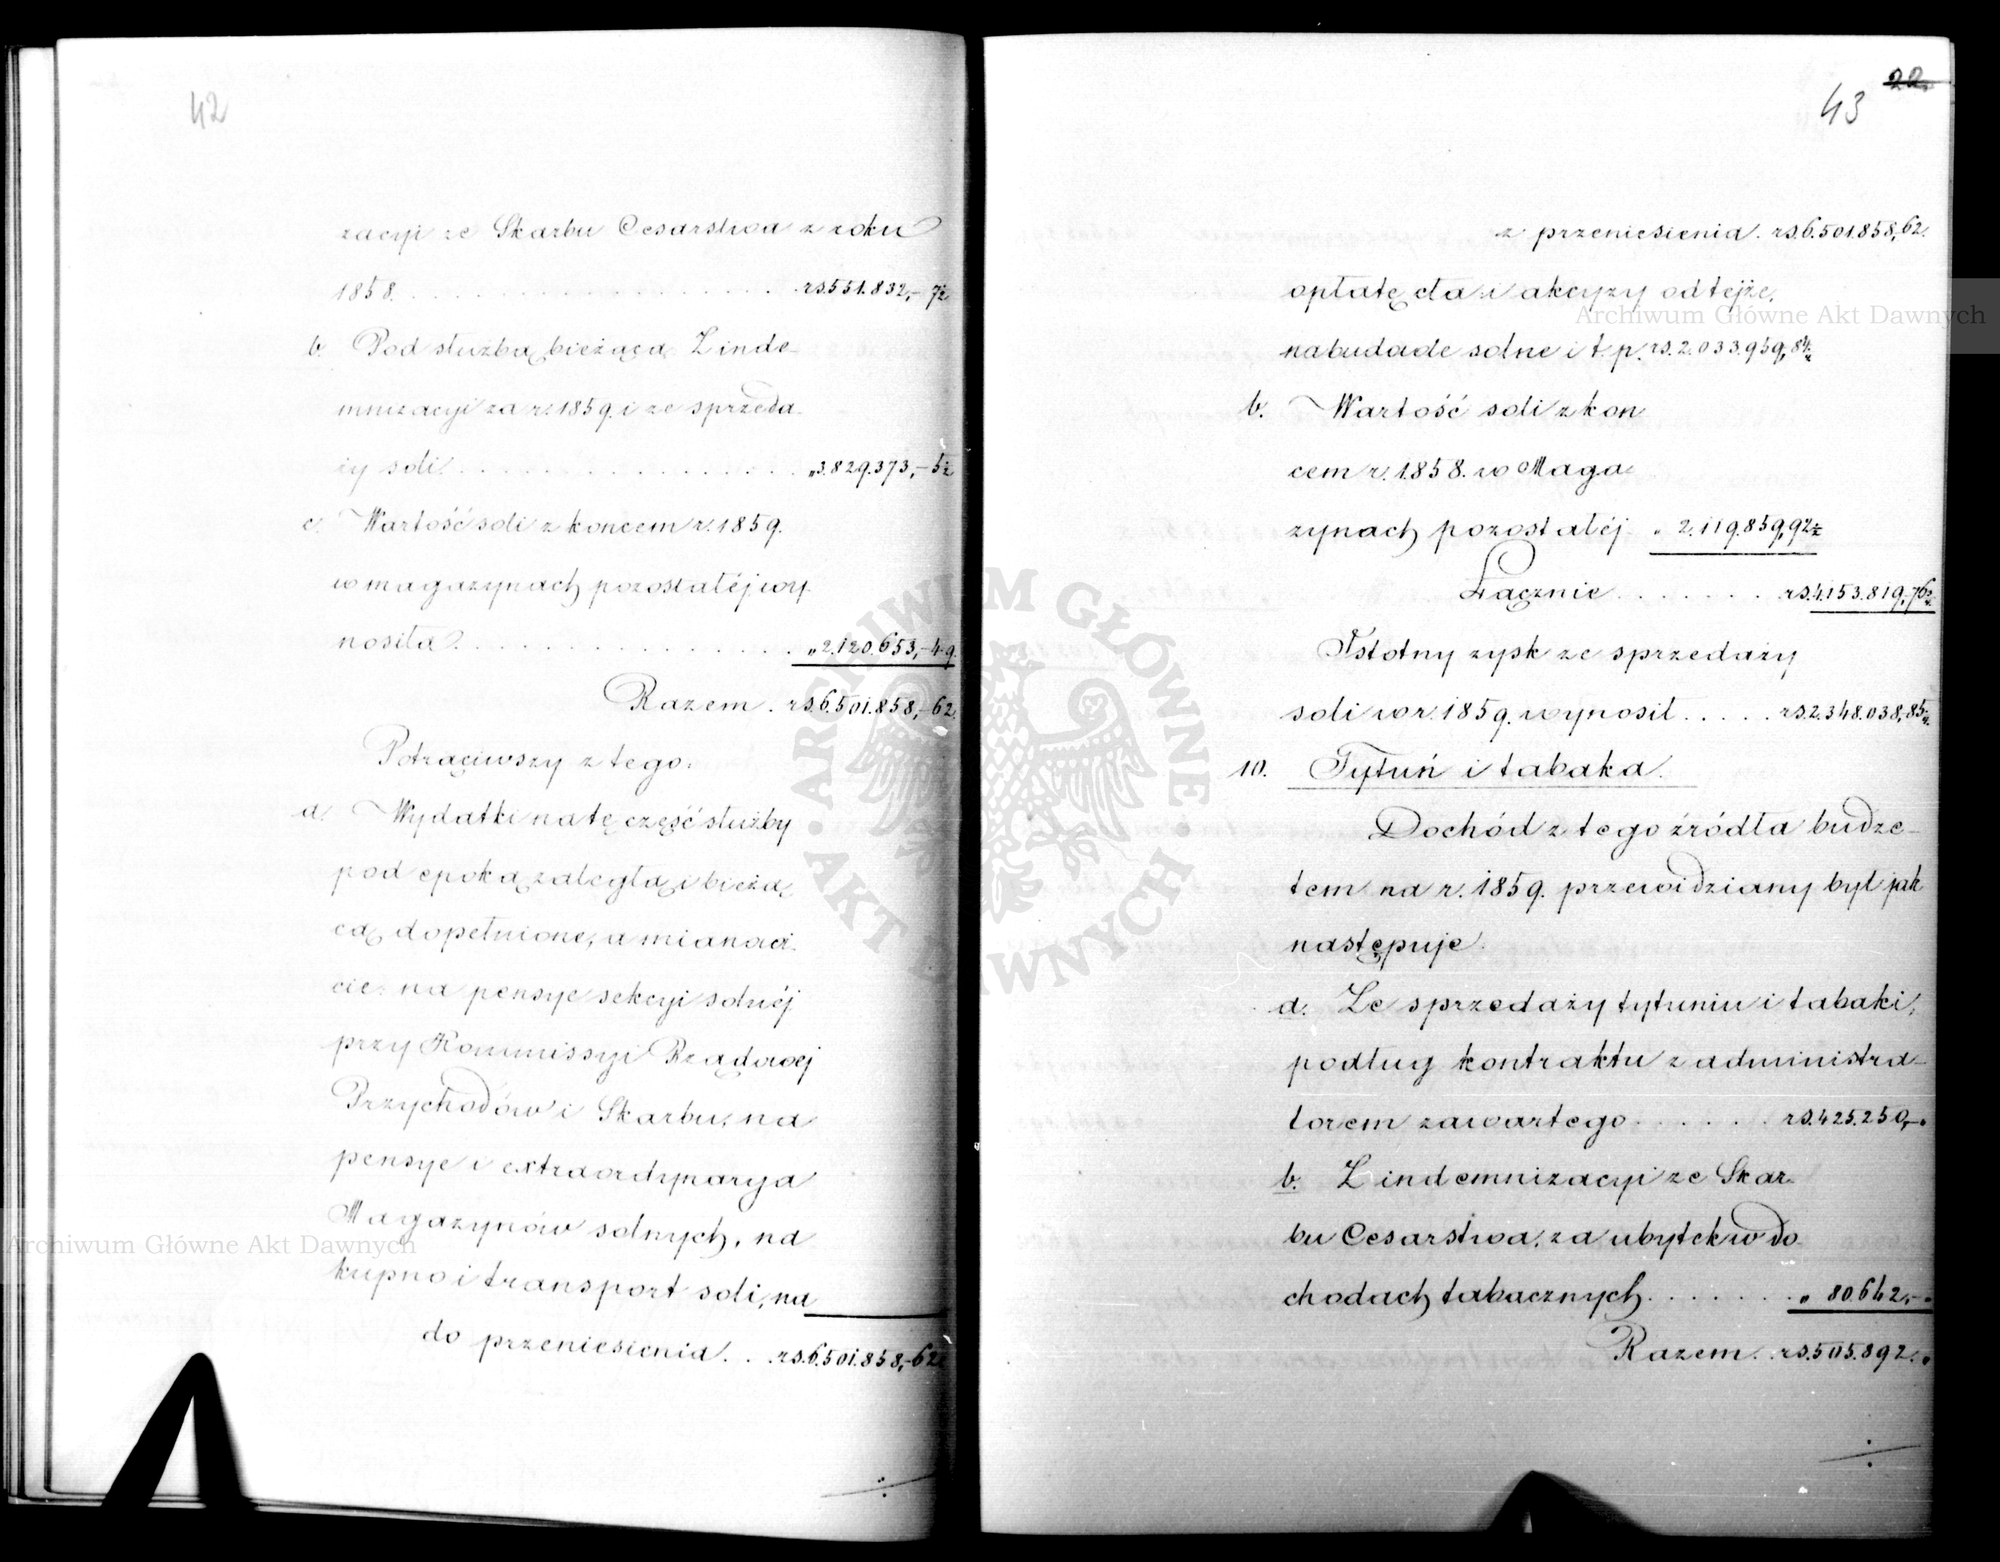 42
zacyi ze Skarbu Cesarstwa z roku
1858. . . . . . . . . . . . . . . . rs. 551.832,– 7½
b. Pod służbą bieżącą Z inde-
mnizacyi za r. 1859. i ze sprzeda-
ży soli . . . . . . . . . . . . . . . „ 3.829.373,– 5½
c. Wartość soli z koncem r. 1859.
w magazynach pozostałéj wy-
nosiła . . . . . . . . . . . . . . . „ 2.120.653,– 49.
Razem . rs. 6.501.858,– 62.
Potrąciwszy z tego.
a. Wydatki na tę część służby
pod epoką zaległą i bieżą-
cą dopełnione, a mianowi-
cie: na pensye sekcyi solnéj
przy Kommissyi Rządowej
Przychodów i Skarbu, na
pensye i extraordynarya
Magazynów solnych, na
kupno i transport soli, na
do przeniesienia. . . rs. 6.501.858,– 62
22.
43
z przeniesienia. rs. 6.501.858,62.
opłatę cła i akcyzy od tejże,
na budowle solne i t. p. rs. 2.033.959,84
b. Wartość soli z kon
cem r. 1858. w Maga-
zynach pozostałéj „ 2.119.859,92½
Łącznie . . . . . . . rs. 4.153.819,76
Istotny zysk ze sprzedaży
soli w r. 1859. wynosił . . . . . rs. 2.348.038,85
10. Tytuń i tabaka.
Dochód z tego źródła budże-
tem na r. 1859. przewidziany był jak
następuje.
a. Ze sprzedaży tytuniu i tabaki,
podług kontraktu z administra-
torem zawartego . . . . . . rs. 425.250,– „
b. Z indemnizacyi ze Skar-
bu Cesarstwa, za ubytek w do
chodach tabacznych . . . . . . . „ 80.642,– „
Razem . rs. 505.892. „
Archiwum Główne Akt Dawnych
Archiwum Główne Akt Dawnych
ARCHIWUM GŁÓWNE • AKT DAWNYCH •